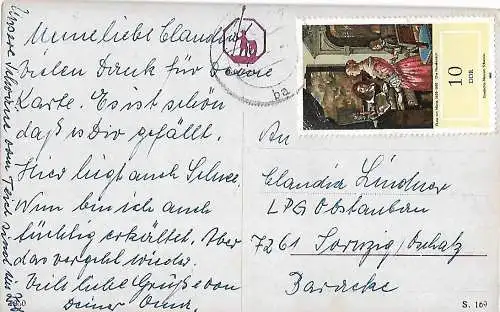 Meine liebe Claudia!
Vielen Dank für Deine
Karte. Es ist schön
daß es Dir gefällt.
Hier liegt auch Schnee.
Nun bin ich auch
tüchtig erkältet. Aber
das vergeht wieder.
Viele liebe Grüße von
Deiner Oma.
Unsere Schwäne vom Teich sind im
ba
10
DDR
An
Claudia Lindner
LPG Obstanbau
7261 Sornzig/Oschatz
Baracke
S. 169